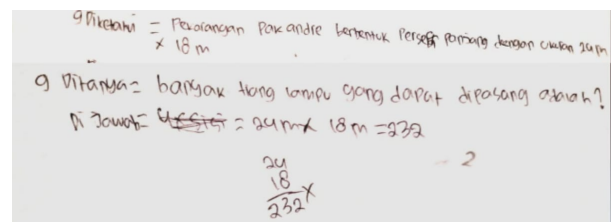 9 Diketahui = Pekarangan Pak andre berbentuk Persegi panjang dengan ukuran 24 m
x 18 m
9 Ditanya = banyak tiang lampu yang dapat dipasang adalah?
Di Jawab = = 24 m x 18 m = 232
2
24
18 x
232